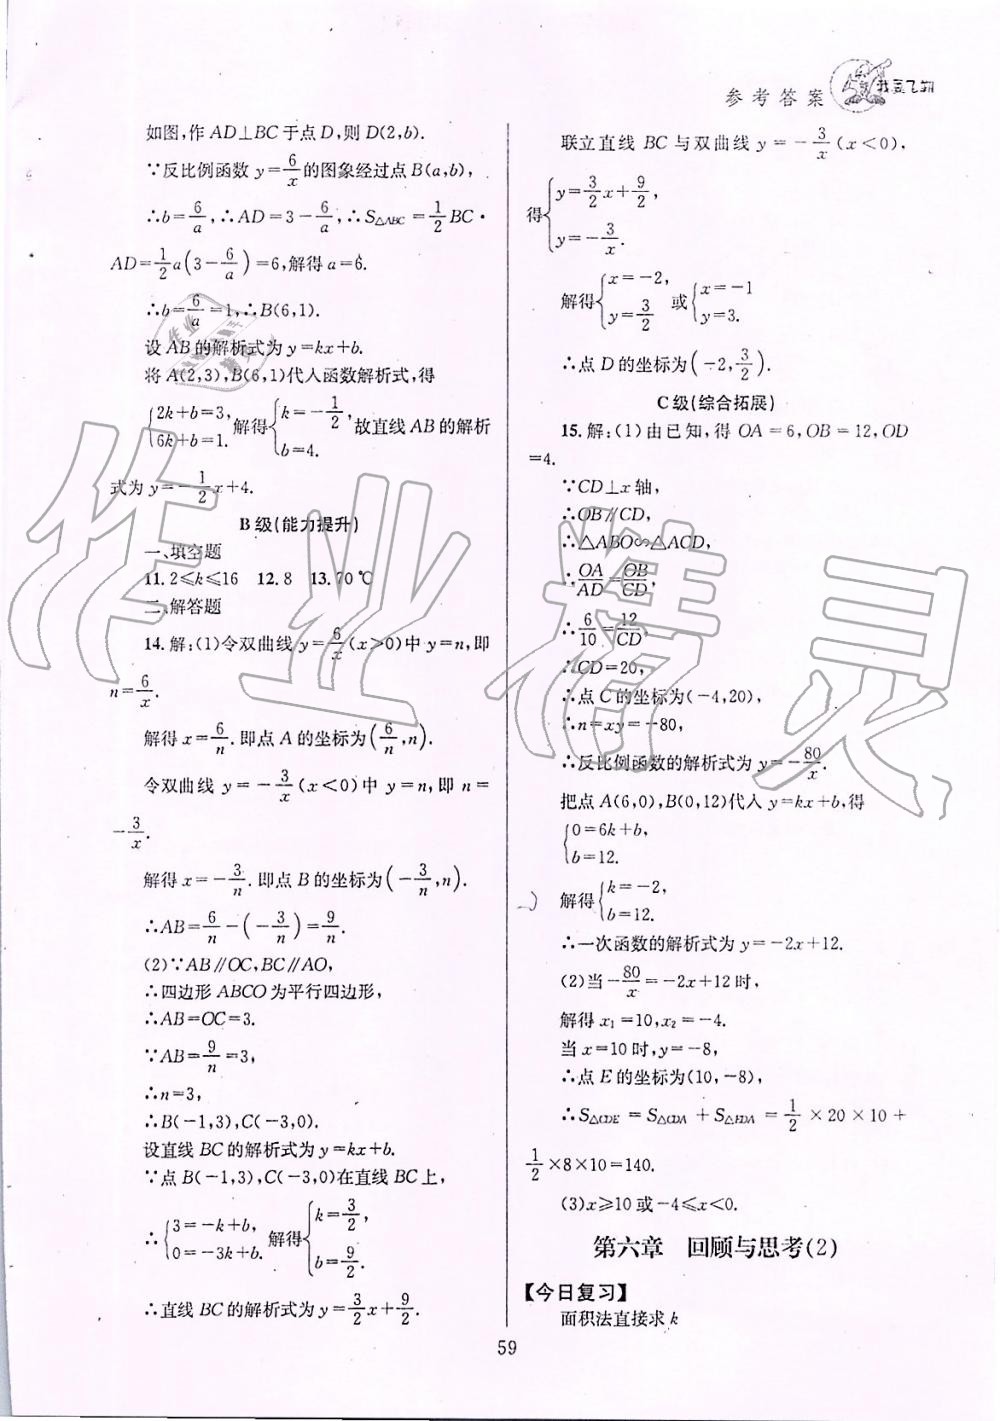 参考答案
我要飞翔
如图,作 AD⊥BC 于点 D,则 D(2,b).
∵反比例函数 y=6/x 的图象经过点 B(a,b),
∴b=6/a,∴AD=3-6/a,∴S△ABC=1/2 BC·
AD=1/2 a(3-6/a)=6,解得 a=6.
∴b=6/a=1,∴B(6,1).
设 AB 的解析式为 y=kx+b.
将 A(2,3),B(6,1)代人函数解析式,得
{2k+b=3, 6k+b=1. 解得{k=-1/2, b=4. 故直线 AB 的解析
式为 y=-1/2 x+4.
B 级(能力提升)
一、填空题
11.2≤k≤16 12.8 13.70 ℃
二、解答题
14.解:(1)令双曲线 y=6/x(x>0)中 y=n,即
n=6/x.
解得 x=6/n.即点 A 的坐标为(6/n,n).
令双曲线 y=-3/x(x<0)中 y=n,即 n=
-3/x.
解得 x=-3/n.即点 B 的坐标为(-3/n,n).
∴AB=6/n-(-3/n)=9/n.
(2)∵AB∥OC,BC∥AO,
∴四边形 ABCO 为平行四边形,
∴AB=OC=3.
∵AB=9/n=3,
∴n=3,
∴B(-1,3),C(-3,0).
设直线 BC 的解析式为 y=kx+b.
∵点 B(-1,3),C(-3,0)在直线 BC 上,
∴{3=-k+b, 0=-3k+b. 解得{k=3/2, b=9/2.
∴直线 BC 的解析式为 y=3/2 x+9/2.
联立直线 BC 与双曲线 y=-3/x(x<0),
得{y=3/2 x+9/2, y=-3/x.
解得{x=-2, y=3/2 或{x=-1 y=3.
∴点 D 的坐标为(-2,3/2).
C 级(综合拓展)
15.解:(1)由已知,得 OA=6,OB=12,OD
=4.
∵CD⊥x 轴,
∴OB∥CD,
∴△ABO∽△ACD,
∴OA/AD=OB/CD,
∴6/10=12/CD,
∴CD=20,
∴点 C 的坐标为(-4,20),
∴n=xy=-80,
∴反比例函数的解析式为 y=-80/x.
把点 A(6,0),B(0,12)代人 y=kx+b,得
{0=6k+b, b=12.
解得{k=-2, b=12.
∴一次函数的解析式为 y=-2x+12.
(2)当-80/x=-2x+12时,
解得 x₁=10,x₂=-4.
当 x=10 时,y=-8,
∴点 E 的坐标为(10,-8),
∴S△CDE=S△CDA+S△EDA=1/2×20×10+
1/2×8×10=140.
(3)x≥10 或-4≤x<0.
第六章 回顾与思考(2)
【今日复习】
面积法直接求 k
59
作业精灵